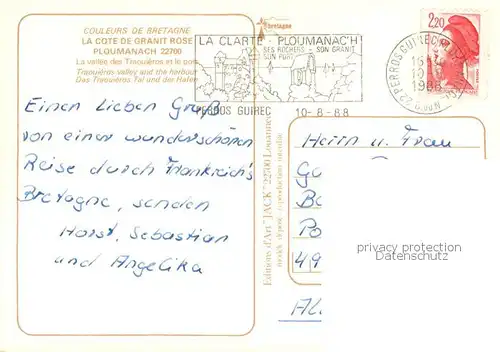 COULEURS DE BRETAGNE
LA COTE DE GRANIT ROSE
PLOUMANACH 22700
La vallée des Traouiéros et le port
Traouiéros valley and the harbour
Das Traouiéros Tal und der Hafen
bretagne
LA CLARTÉ - PLOUMANAC'H
SES ROCHERS - SON GRANIT
SON PORT
PERROS GUIREC 10-8-88
2,20
22 PERROS GUIREC
1988
Einen lieben Gruß
von einer wunderschönen
Reise durch Frankreich's
Bretagne, senden
Horst, Sebastian
und Angelika
Editions d'Art "JACK" 22700 Louannec
modèle déposé - reproduction interdite
Herrn u. Frau
privacy protection
Datenschutz